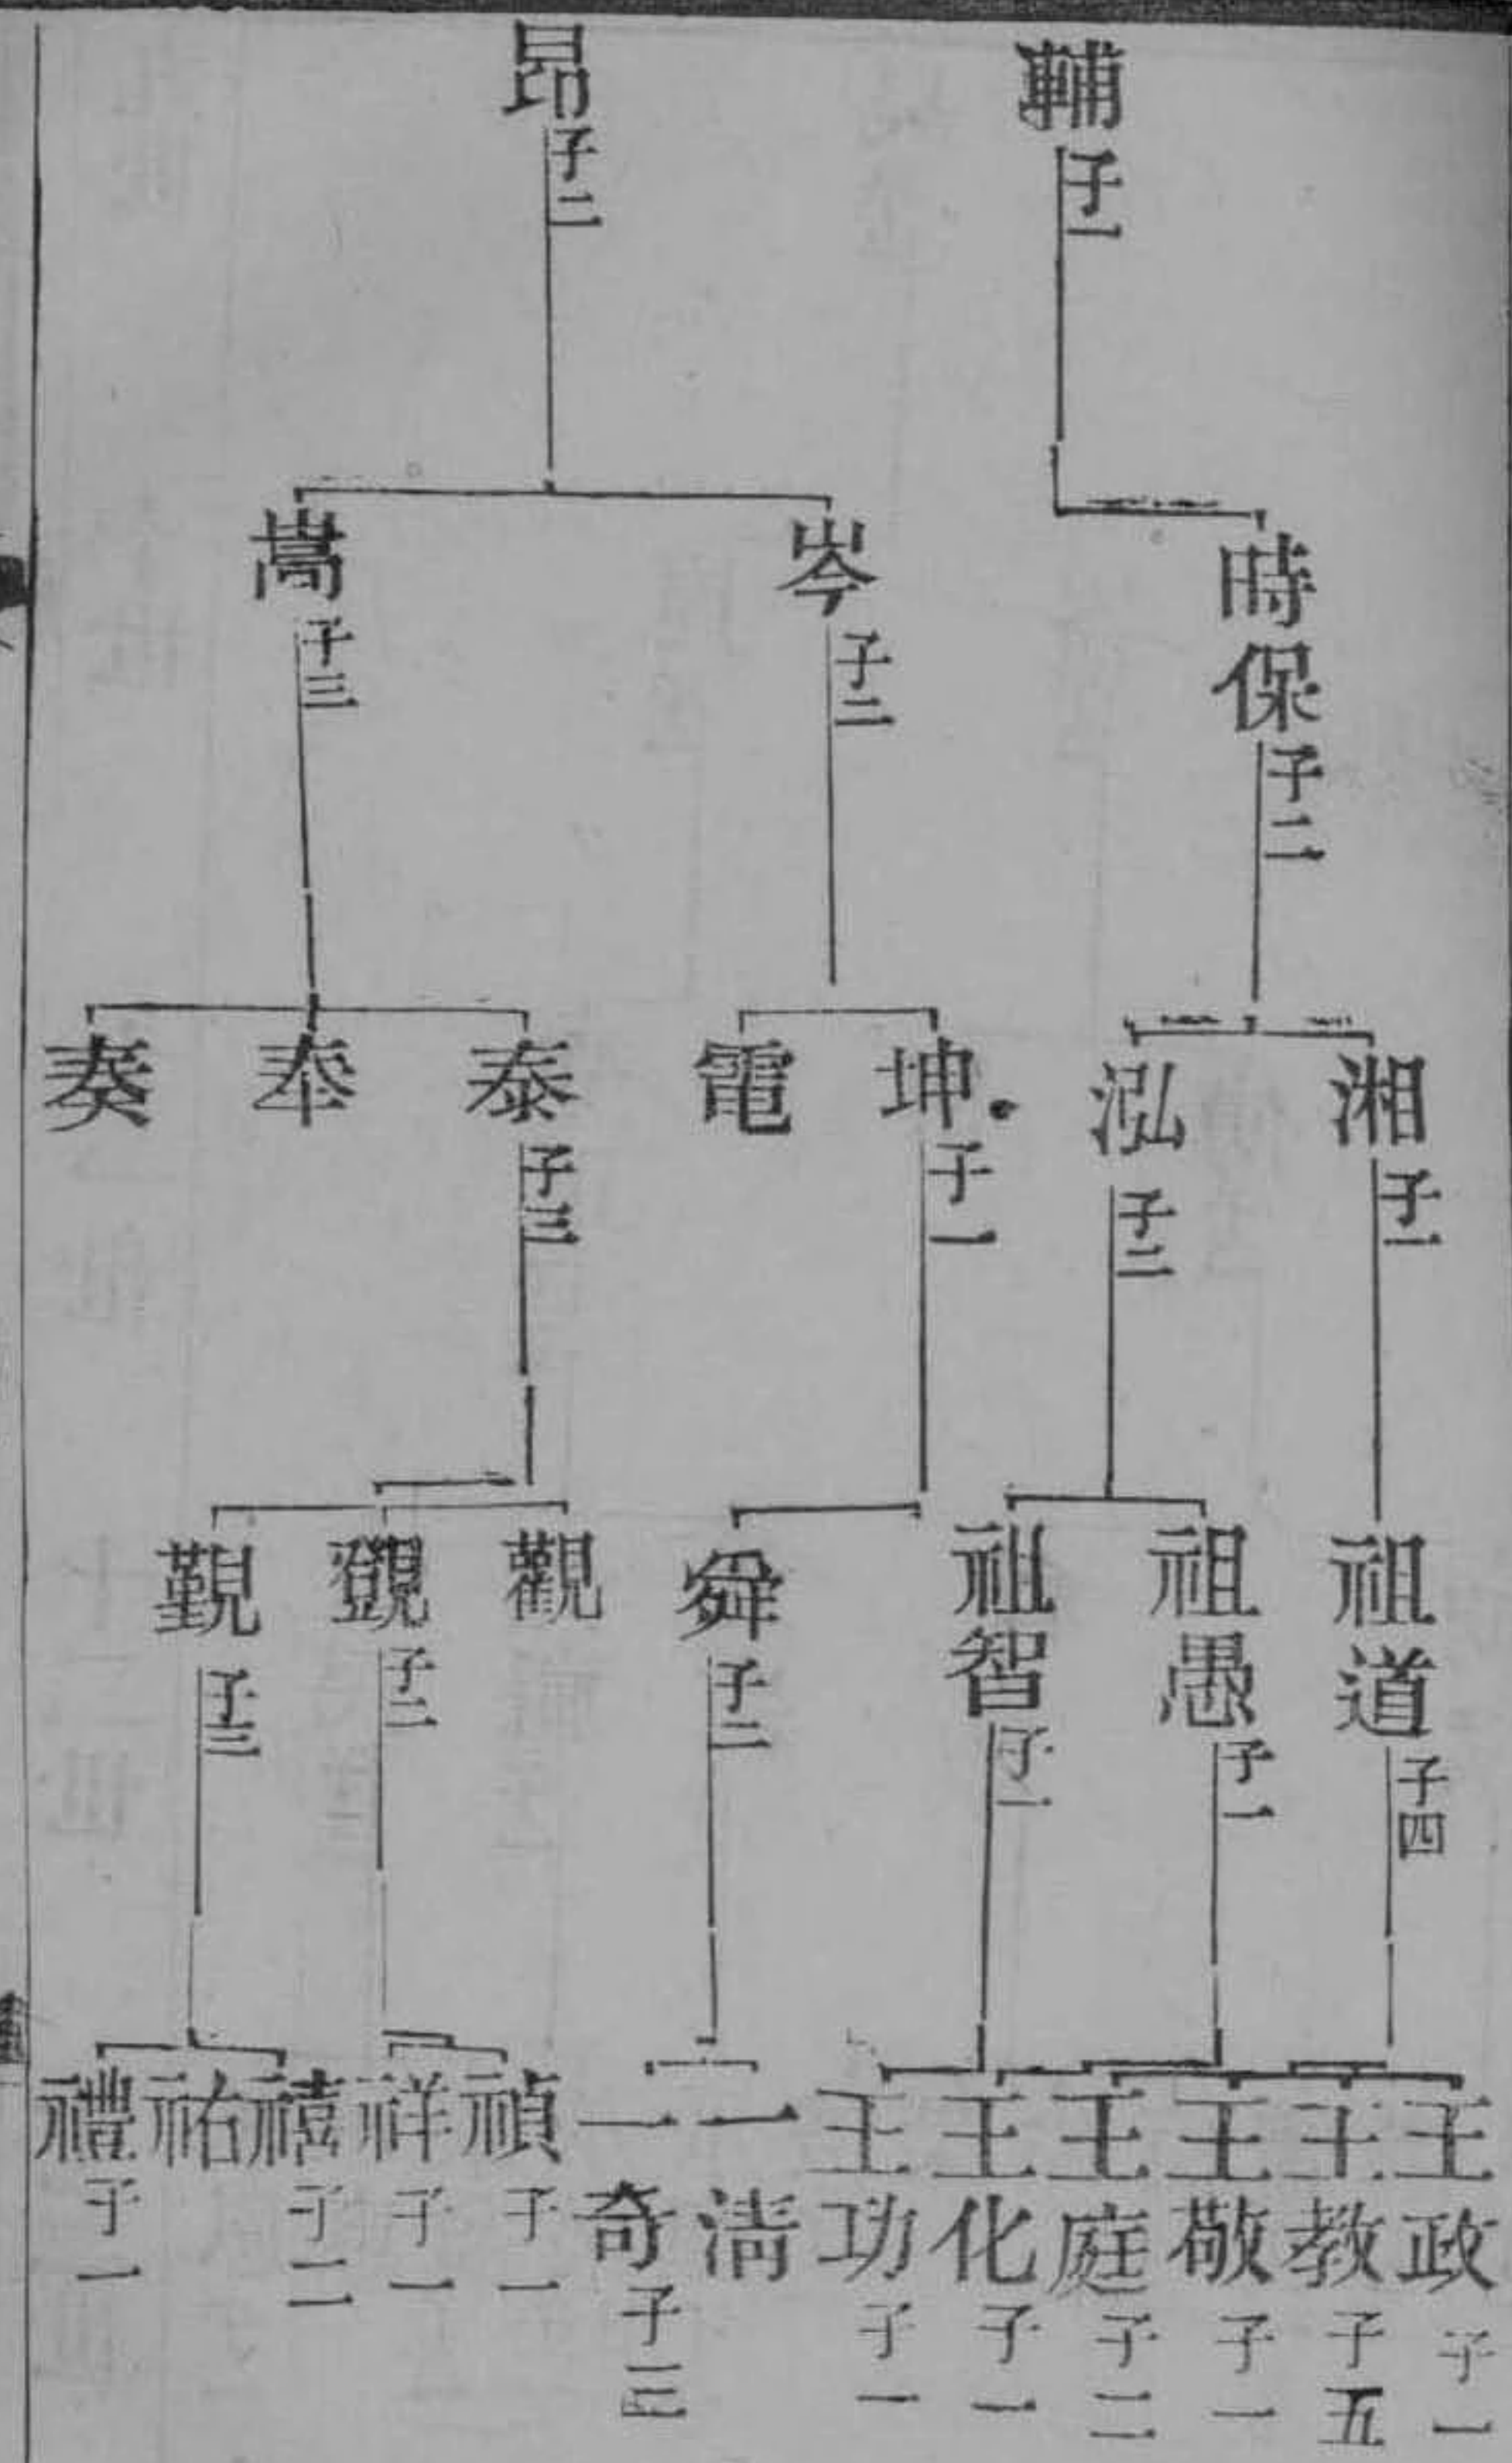 輔子一
昂子二
時保子二
岑子二
嵩子三
湘子一
泓子二
坤子一
電
泰子三
奉
奏
祖道子四
祖愚子一
祖智子一
舜子二
觀
覴子二
觐子三
王政子一
王教子五
王敬子一
王庭子二
王化子一
王功子一
一清
一奇子三
禎子一
祥子一
禧子二
祐
禮子一